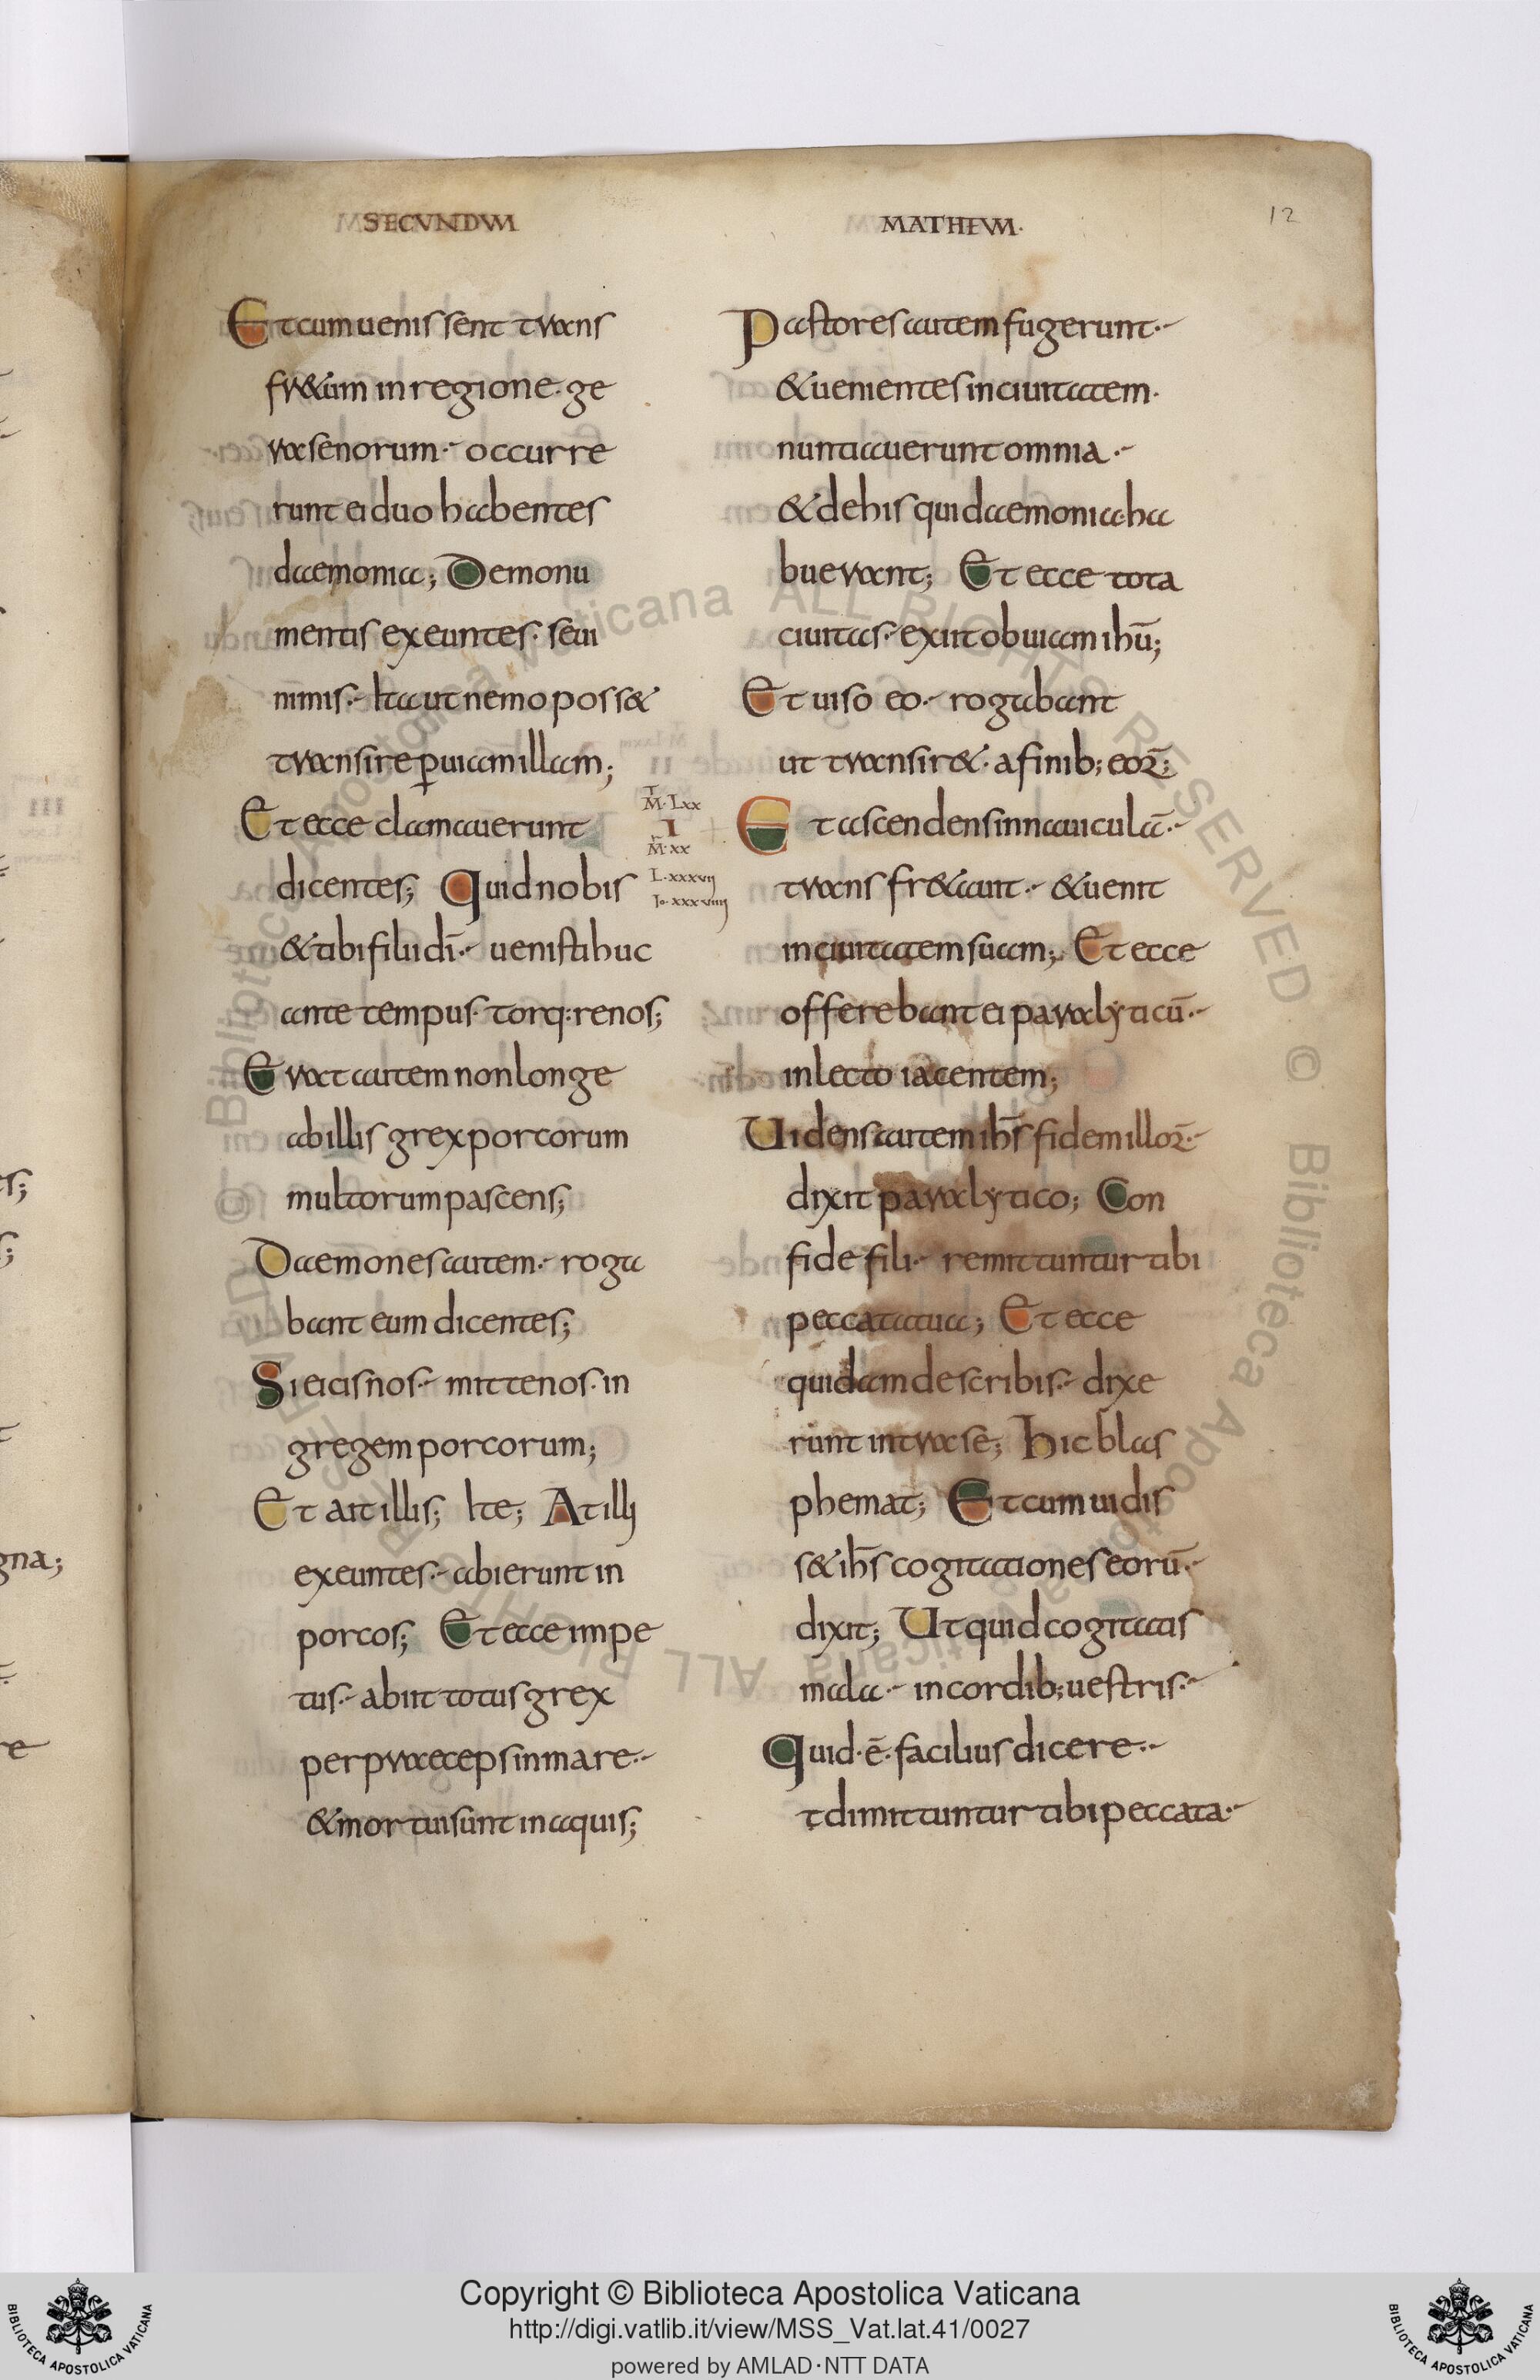 SECUNDUM
MATHEUM·
12
Et cum uenissent trans
fr&um in regione·ge
rasenorum· occurre
runt ei duo habentes
daemonia; Demonu
mentis exeuntes· seui
nimis· Ita ut nemo poss&
transire ꝑ uiam illam;
Et ecce clamauerunt
dicentes; Quid nobis
& tibi filii dī· uenisti huc
ante tempus· torq:re nos;
Erat autem non longe
ab illis grex porcorum
multorum pascens;
Daemones autem· roga
bant eum dicentes;
Si eicis nos· mitte nos·in
gregem porcorum;
Et ait illis; Ite; At illi
exeuntes· abierunt in
porcos; Et ecce impe
tus· abiit totus grex
per praeceps in mare·
& mortui sunt in aquis;
M·Lxx
I
M·xx
L·xxxvij
Io·xxxviiij
Pastores autem fugerunt·
& uenientes in ciuitatem·
nuntiauerunt omnia·
& de his qui daemonia·ha
buerant; Et ecce tota
ciuitas· exiit obuiam ihū;
Et uiso eo· rogabant
ut transir&· a finib; eoꝝ;
Et ascendens in nauiculā·
transfr&auit· & uenit
in ciuitatem suam; Et ecce
offerebant ei paralyticū·
in lecto iacentem;
Uidens autem ihs̄ fidem illoꝝ·
dixit paralytico; Con
fide fili· remittuntur tibi
peccata tua; Et ecce
quidam de scribis· dixe
runt intra se; Hic blas
phemat; Et cum uidis
s& ihs̄ cogitationes eorū·
dixit; Ut quid cogitatis
mala· in cordib; uestris·
Quid·ē·facilius dicere·
dimittuntur tibi peccata·
© Biblioteca Apostolica Vaticana ALL RIGHTS RESERVED
Copyright © Biblioteca Apostolica Vaticana
http://digi.vatlib.it/view/MSS_Vat.lat.41/0027
powered by AMLAD·NTT DATA
BIBLIOTECA APOSTOLICA VATICANA
BIBLIOTECA APOSTOLICA VATICANA